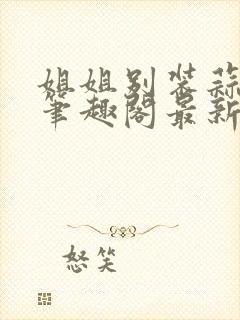 姐姐别装蒜
笔趣阁最新
怒笑